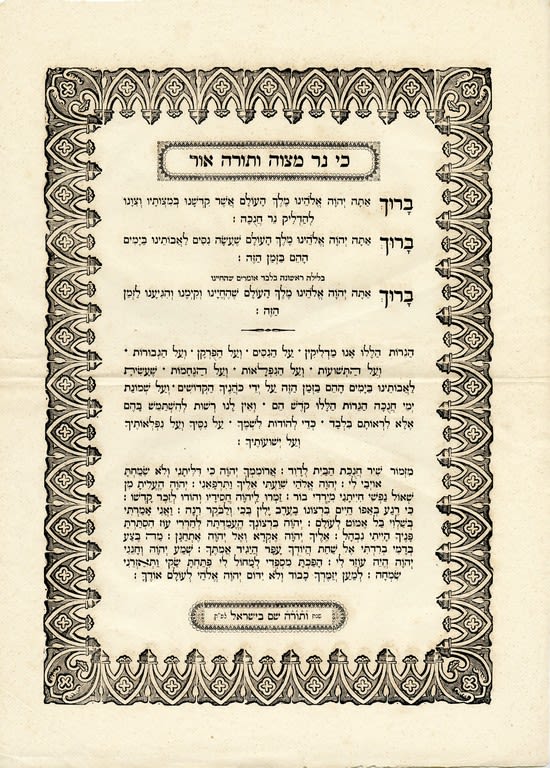 כי נר מצוה ותורה אור
בָּרוּךְ אַתָּה יְהֹוָה אֱלֹהֵינוּ מֶלֶךְ הָעוֹלָם אֲשֶׁר קִדְּשָׁנוּ בְּמִצְוֹתָיו וְצִוָּנוּ
לְהַדְלִיק נֵר חֲנֻכָּה :
בָּרוּךְ אַתָּה יְהֹוָה אֱלֹהֵינוּ מֶלֶךְ הָעוֹלָם שֶׁעָשָׂה נִסִּים לַאֲבוֹתֵינוּ בַּיָּמִים
הָהֵם בַּזְּמַן הַזֶּה :
בלילה ראשונה בלבד אומרים שהחיינו
בָּרוּךְ אַתָּה יְהֹוָה אֱלֹהֵינוּ מֶלֶךְ הָעוֹלָם שֶׁהֶחֱיָינוּ וְקִיְּמָנוּ וְהִגִּיעָנוּ לַזְּמַן
הַזֶּה :
הַנֵּרוֹת הַלָּלוּ אָנוּ מַדְלִיקִין • עַל הַנִּסִּים • וְעַל הַפֻּרְקָן • וְעַל הַגְּבוּרוֹת •
וְעַל הַתְּשׁוּעוֹת • וְעַל הַנִּפְלָאוֹת • וְעַל הַנֶּחָמוֹת • שֶׁעָשִׂיתָ
לַאֲבוֹתֵינוּ בַּיָּמִים הָהֵם בַּזְּמַן הַזֶּה עַל יְדֵי כֹּהֲנֶיךָ הַקְּדוֹשִׁים • וְעַל שְׁמוֹנַת
יְמֵי חֲנֻכָּה הַנֵּרוֹת הַלָּלוּ קֹדֶשׁ הֵם • וְאֵין לָנוּ רְשׁוּת לְהִשְׁתַּמֵּשׁ בָּהֶם
אֶלָּא לִרְאוֹתָם בִּלְבָד • כְּדֵי לְהוֹדוֹת לְשִׁמְךָ • עַל נִסֶּיךָ וְעַל נִפְלְאוֹתֶיךָ
וְעַל יְשׁוּעָתֶיךָ :
מִזְמוֹר שִׁיר חֲנֻכַּת הַבַּיִת לְדָוִד : אֲרוֹמִמְךָ יְהֹוָה כִּי דִלִּיתָנִי וְלֹא שִׂמַּחְתָּ
אוֹיְבַי לִי : יְהֹוָה אֱלֹהָי שִׁוַּעְתִּי אֵלֶיךָ וַתִּרְפָּאֵנִי : יְהֹוָה הֶעֱלִיתָ מִן
שְׁאוֹל נַפְשִׁי חִיִּיתַנִי מִיָּרְדִי בוֹר : זַמְּרוּ לַיהֹוָה חֲסִידָיו וְהוֹדוּ לְזֵכֶר קָדְשׁוֹ :
כִּי רֶגַע בְּאַפּוֹ חַיִּים בִּרְצוֹנוֹ בָּעֶרֶב יָלִין בֶּכִי וְלַבֹּקֶר רִנָּה : וַאֲנִי אָמַרְתִּי
בְשַׁלְוִי בַּל אֶמּוֹט לְעוֹלָם : יְהֹוָה בִּרְצוֹנְךָ הֶעֱמַדְתָּה לְהַרְרִי עֹז הִסְתַּרְתָּ
פָנֶיךָ הָיִיתִי נִבְהָל : אֵלֶיךָ יְהֹוָה אֶקְרָא וְאֶל יְהֹוָה אֶתְחַנָּן : מַה בֶּצַע
בְּדָמִי בְּרִדְתִּי אֶל שַׁחַת הֲיוֹדְךָ עָפָר הֲיַגִּיד אֲמִתֶּךָ : שְׁמַע יְהֹוָה וְחָנֵּנִי
יְהֹוָה הֱיֵה עוֹזֵר לִי : הָפַכְתָּ מִסְפְּדִי לְמָחוֹל לִי פִּתַּחְתָּ שַׂקִּי וַתְּאַזְּרֵנִי
שִׂמְחָה : לְמַעַן יְזַמֶּרְךָ כָבוֹד וְלֹא יִדּוֹם יְהֹוָה אֱלֹהַי לְעוֹלָם אוֹדֶךָּ :
שנת ותורה שם בישראל לפ״ק